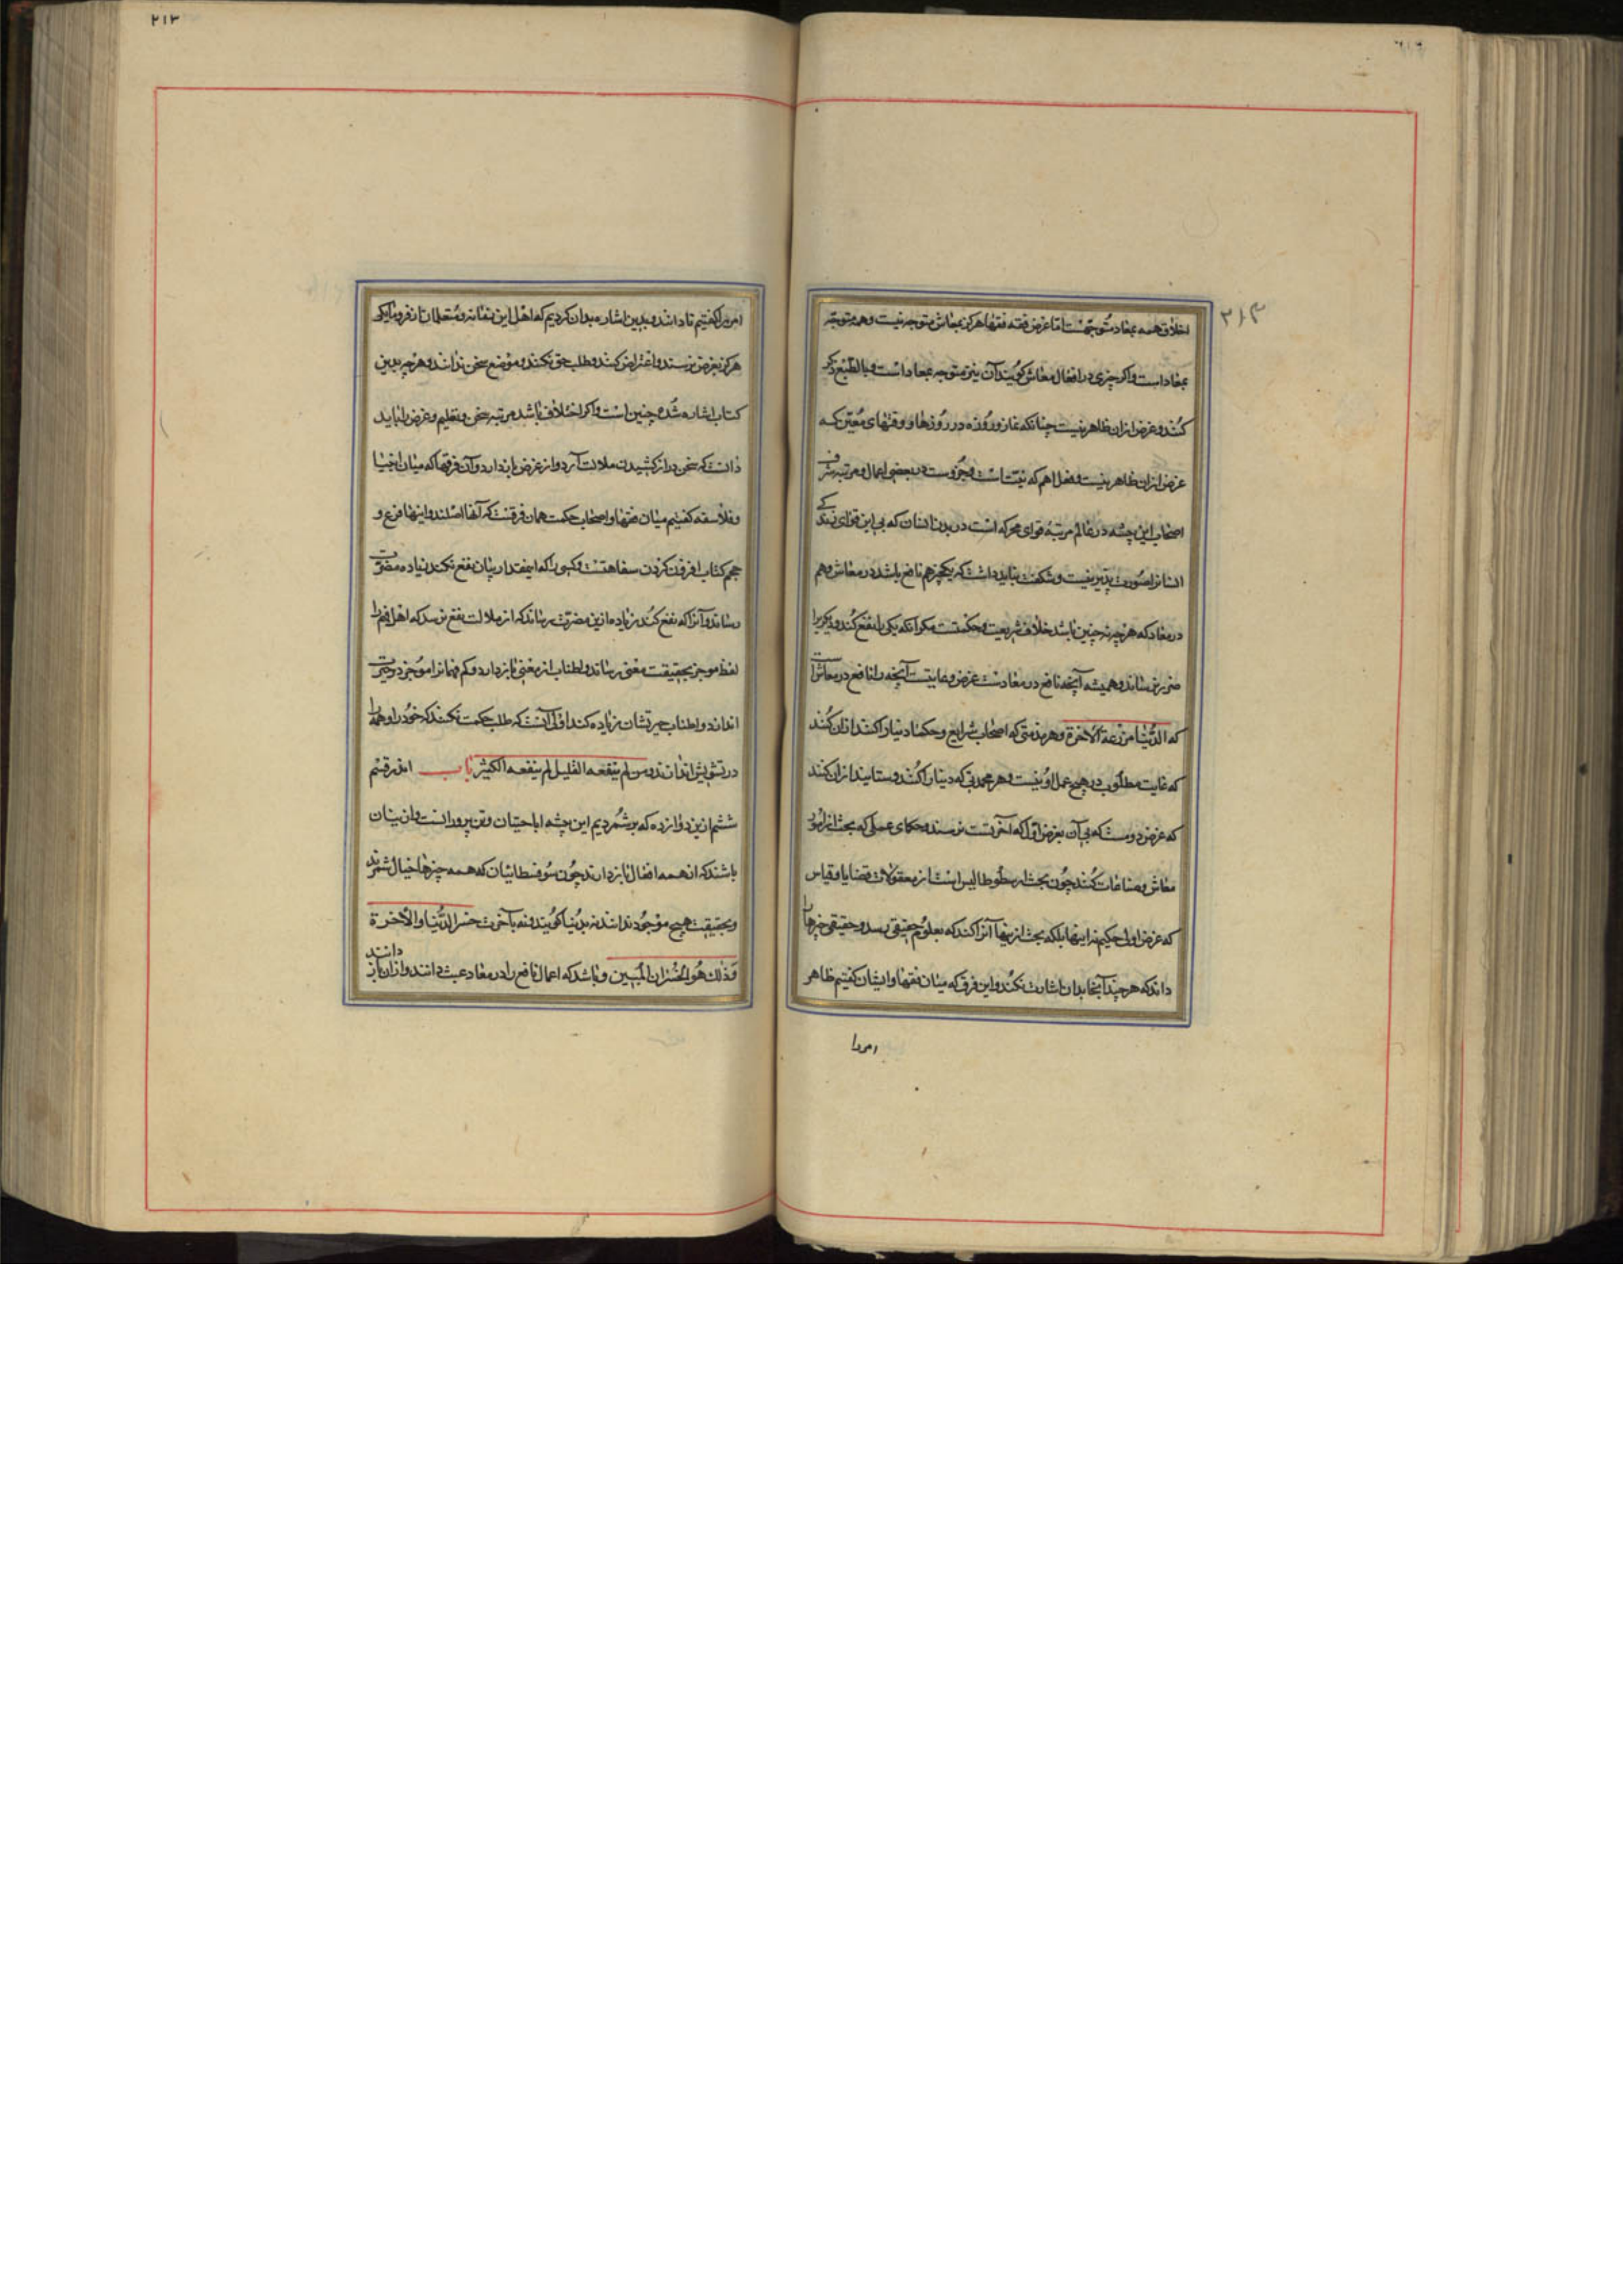 ۲۱۳
اخلاق همه بمعاد متوجّهست امّا غرض فقه فقها هرگز بمعاش متوجه نیست و همه متوجّه
بمعاداست واکر چیزی در افعال معاش کویند آن نیز متوجه بمعاد است و بالطّبع ذکر
کنند و غرض ازان ظاهر نیست چنانکه نماز و روُزه در روُزها و وقتهای معیّن که
غرض ازان ظاهر نیست و فعل اهم که نیّت است و جزوست در بعضی اعمال و مرتبه شرف
اصحاب این پیشه در عالم مرتبهٔ قوای محرکه است در بدن انسان که بی این قوای زندگی
انسانرا صورت پذیر نیست و شکفت نباید داشت که یکچیز هم نافع باشد در معاش و هم
در معاد که هرچه نه چنین باشد خلاف شریعت و حکمتست مکر آنکه یکی را نفع کند و دیکریرا
ضرر نرساند و همیشه آنچه نافع در معادست غرض و غایتست آنچه را نافع در معاش است
که الدُّنیا مزرعة الاخرة و هر مذمتی که اصحاب شرایع و حکما دنیا را کنند ازان کُنند
که غایت مطلوب در هیچ عمل او نیست و هر محمدتی که دنیا را کنند و ستایند ازان کنند
که غرض دومست که بی آن بغرض اوّل که آخرتست نرسند و حکمای عملی که بحث از امور
معاش و صناعات کنند چون بحث ارسطوطالیس است از معقولات و قضایا و قیاس
که غرض اولی حکیم نه اینها بلکه بحث ازینها آنرا کند که بعلوم حقیقی رسد و حقیقی چیزها را
داند که هر چند آنجا بدان اشارت نکند و این فرق که میان فقها و ایشان کفتیم ظاهر
امررا
۲۱۳
امررا کفتیم تا دانند و بدین اشاره بدان کردیم که اهل این زمانه و متعلمان از فرومایکی
هرکز بغرض نرسند و اعتراض کنند و طلب حق نکنند و موضع سخن ندانند و هرچه بدین
کتاب اشاره شده چنین است و اکر اختلاف باشد مرتبهٔ سخن و تعلیم و غرض را نباید
دانست که سخن دراز کشیدن ملالت آرد و از غرض باز دارد و آن فرقها که میان انبیا
و فلاسفه کفتیم میان فقها و اصحاب حکمت همان فرقست که آنها اصلند و اینها فرع و
حجم کتاب افزون کردن سفاهتست و کسی را که اینمقدار بیان نفع نکند زیاده مضرّت
رساند و آنرا که نفع کند زیاده ازین مضرت رساند که از ملالت نفع نرسد که اهل فهم را
لفظ موجز بحقیقت معنی رساند و اطناب از معنی باز دارد و کم فهمانرا موجز در حیرت
اندازد و اطناب حیرتشان زیاده کند اولی آنست که طلب حکمت نکنند که خود را و همه را
در تشویش اندازند و من لم ینفعه القلیل لم ینفعه الکثیر باب اندر قسم
ششم ازین دوازده که برشمردیم این پیشه اباحتیان و تن پرورانست و از ینان
باشند که از همه افعال باز دارند چون سُوفسطائیان که همه چیزها خیال شمرند
و بحقیقت هیچ موجُود ندانند نه بدُنیا کویند و نه بآخرت خسر الدُّنیا والاخرة
وَذلك هُو الخُسران المُبین و باشد که اعمال نافع را در معاد عبث دانند و ازان باز دانند